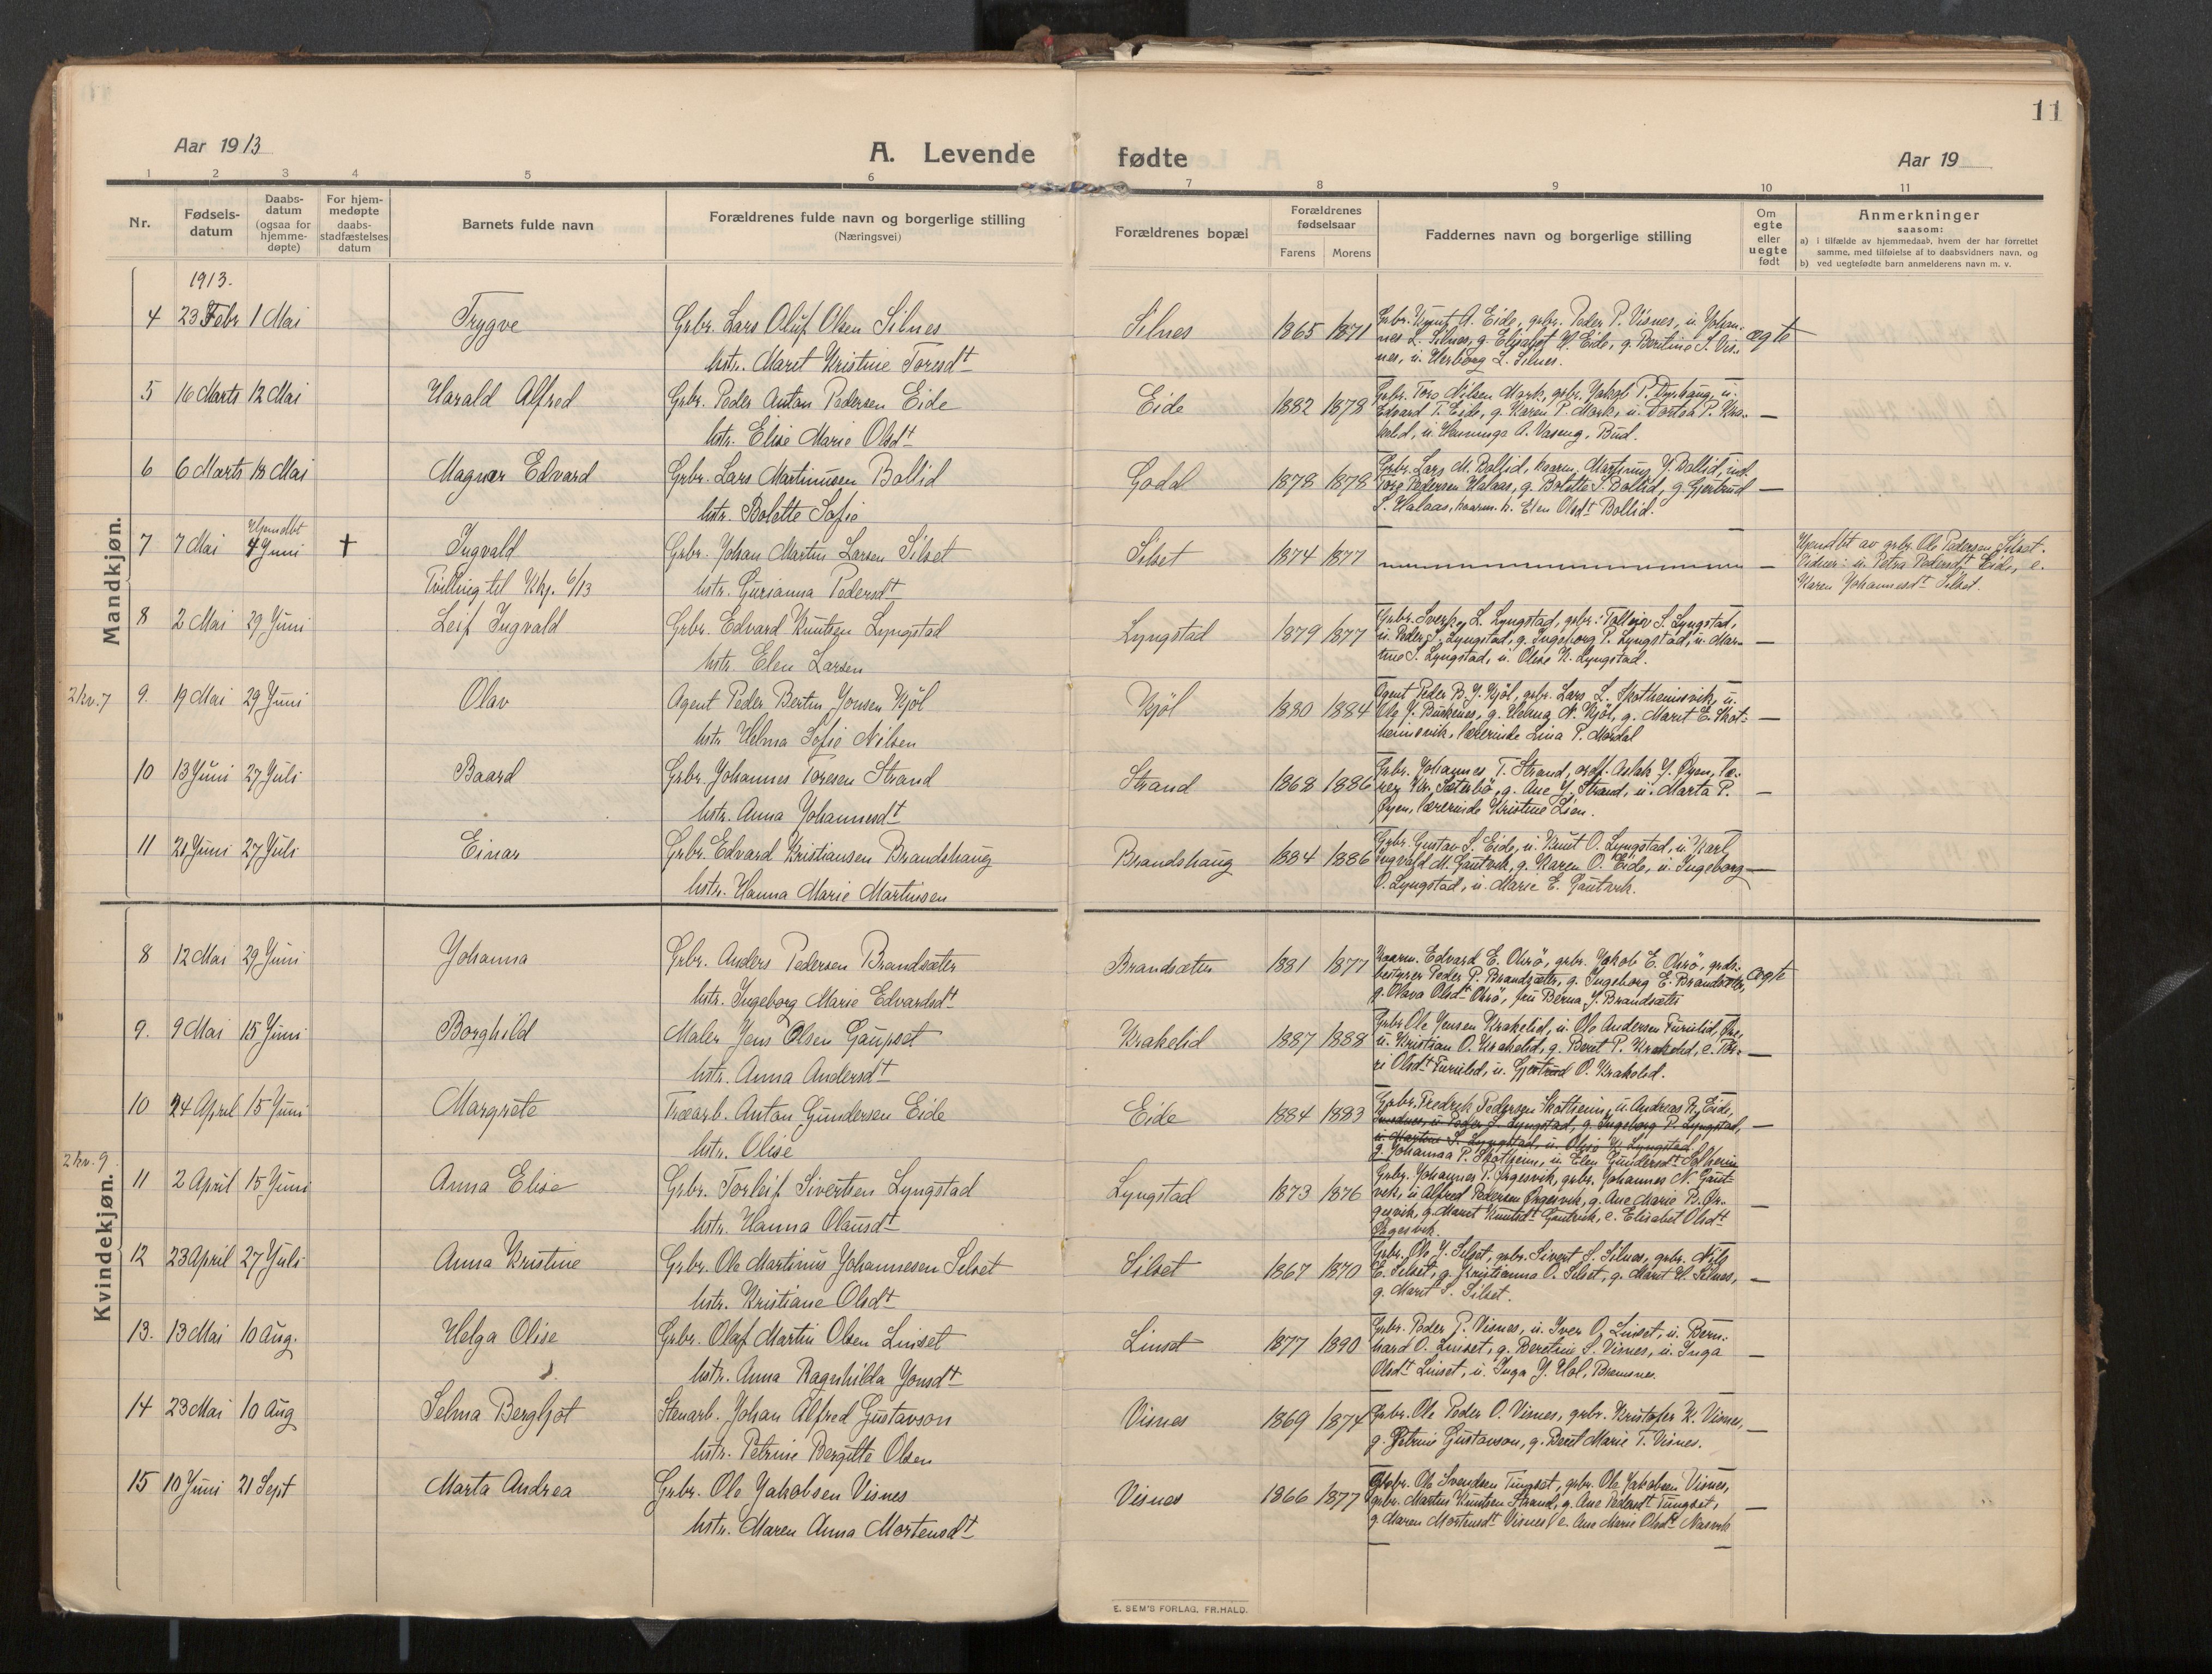 11
Aar 1913
A. Levende fødte
Aar 19
1 2 3 4 5 6 7 8 9 10 11
Nr.
Fødsels-
datum
Daabs-
datum
(ogsaa for
hjemme-
døpte)
For hjem-
medøpte
daabs-
stadfæstelses
datum
Barnets fulde navn
Forældrenes fulde navn og borgerlige stilling
(Næringsvei)
Forældrenes bopæl
Forældrenes
fødselsaar
Farens Morens
Faddernes navn og borgerlige stilling
Om
egte
eller
uegte
født
Anmerkninger
saasom:
a) i tilfælde av hjemmedaab, hvem der har forrettet
samme, med tilføielse af to daabsvidners navn, og
b) ved uegtefødte barn anmelderens navn m. v.
Mandkjøn.
1913.
4 23 Febr 1 Mai Trygve Grbr. Lars Oluf Olsen Silnes Silnes 1865 1871 ægte
hstr. Marit Kristine Toresdt
Grbr. Knut A. Eide, grbr. Peder P. Visnes, u. Johan-
nes L. Silnes, g. Elisabet K. Eide, g. Beritine S. Vis-
nes, u. Herborg L. Silnes.
5 16 Marts 12 Mai Harald Alfred Grbr. Peder Anton Pedersen Eide Eide 1882 1878 —
hstr. Elise Marie Olsdt
Grbr. Tore Nilsen Mork, grbr. Jakob P. Dyrhaug, u.
Edvard T. Eide, g. Karen P. Mork, u. Dortea P. Kra-
kelid, u. Hemminga A. Vaseng, Bud.
6 6 Marts 18 Mai Magnar Edvard Grbr. Lars Martinusen Bollid Godal 1878 1878 —
hstr. Bolette Sofie
Grbr. Lars M. Bollid, kaarm. Martinus J. Bollid, ind.
Tore Pedersen Halaas, g. Bolette S. Bollid, g. Gjertrud
S. Halaas, kaarm. k. Elen Olsdt Bollid.
7 7 Mai Hjemdbt 4 Juni † Ingvald Grbr. Johan Martin Larsen Silset Silset 1874 1877 —
Tvilling til Kkj. 6/13 hstr. Gurianna Pedersdt
Hjemdbt av grbr. Ole Pedersen Silset.
Vidner: u. Petra Pedersdt Eide, e.
Karen Johannesdt Silset.
8 2 Mai 29 Juni Leif Ingvald Grbr. Edvard Knutsen Lyngstad Lyngstad 1879 1877 —
hstr. Elen Larsen
Grbr. Sverke L. Lyngstad, grbr. Tolleiv S. Lyngstad,
u. Peder S. Lyngstad, g. Ingeborg P. Lyngstad, u. Mar-
tine S. Lyngstad, u. Olise K. Lyngstad.
2 kv. 7
9. 19 Mai 29 Juni Olav Agent Peder Bertin Jonsen Kjöl Kjöl 1880 1884 —
hstr. Helma Sofie Nilsen
Agent Peder B. J. Kjöl, grbr. Lars L. Skotheimsvik, u.
Ole J. Birkenes, g. Helma N. Kjöl, g. Marit E. Skot-
heimsvik, lærerinde Lina P. Mordal
10 13 Juni 27 Juli Baard Grbr. Johannes Toresen Strand Strand 1868 1886 —
hstr. Anna Johannesdt
Grbr. Johannes T. Strand, ordf. Aslak J. Øyen, læ-
rer Kr. Sæterbö, g. Ane J. Strand, u. Marta P.
Øyen, lærerinde Kristine Lien.
11 21 Juni 27 Juli Einar Grbr. Edvard Kristiansen Brandshaug Brandshaug 1884 1886 —
hstr. Hanna Marie Martinsen
Grbr. Gustav S. Eide, u. Knut O. Lyngstad, u. Karl
Ingvald M. Gautvik, g. Karen O. Eide, u. Ingeborg
O. Lyngstad, u. Marie E. Gautvik.
Kvindekjøn.
8 12 Mai 29 Juni Johanna Grbr. Anders Pedersen Brandsæter Brandsæter 1881 1877 ægte
hstr. Ingeborg Marie Edvardsdt
Kaarm. Edvard E. Ohrö, grbr. Jakob E. Ohrö, grds-
bestyrer Peder P. Brandsæter, g. Ingeborg E. Brandsæter,
g. Olava Olsdt Ohrö, fru Berna J. Brandsæter
9. 9 Mai 15 Juni Borghild Maler Jens Olsen Gaupset Krakelid 1887 1888 —
hstr. Anna Andersdt
Grbr Ole Jensen Krakelid, u. Ole Andersen Furulid,
u. Kristian O. Krakelid, g. Berit P. Krakelid, e.
Olsdt Furulid, u. Gjertrud O. Krakelid.
10 24 April 15 Juni Margrete Træarb. Anton Gundersen Eide Eide 1884 1883
hstr. Olise
Grbr. Fredrik Pedersen Skotheim, u. Andreas K. Eide,
u. Peder S. Lyngstad, g. Ingeborg P. Lyngstad,
u. Martine S. Lyngstad, u. Olise K. Lyngstad
g. Johanna P. Skotheim, u. Elen Gundersdt Solheim
2 kv. 9
11 2 April 15 Juni Anna Elise Grbr. Torleif Sivertsen Lyngstad Lyngstad 1873 1876 —
hstr. Hanna Olausdt
Grbr. Johannes P. Ørgesvik, grbr. Johannes N. Gaut-
vik, u. Alfred Pedersen Ørgesvik, g. Ane Marie B. Ør-
gesvik, g. Marit Knutsdt Gautvik, e. Elisabet Olsdt
Ørgesvik.
12 23 April 27 Juli Anna Kristine Grbr. Ole Martinus Johannesen Silset Silset 1867 1870 —
hstr. Kristiane Olsdt
Grbr. Ole J. Silset, grbr. Sivert S. Silnes, grbr. Nils
E. Silset, g. Kristianna O. Silset, g. Marit H. Silnes,
g. Marit S. Silset.
13. 13 Mai 10 Aug. Helga Olise Grbr. Olaf Martin Olsen Linset Linset 1877 1890 —
hstr. Anna Ragnhilda Jonsdt
Grbr. Peder P. Visnes, u. Iver O. Linset, u. Bern-
hard O. Linset, g. Beretine S. Visnes, u. Inga
Olsdt Linset, u. Inga J. Hol, Bremsnes.
14 23 Mai 10 Aug Selma Bergljot Stenarb. Johan Alfred Gustavson Visnes 1869 1874 —
hstr. Petrine Bergitte Olsen
Grbr. Ole Peder O. Visnes, grbr. Kristofer K. Visnes,
g. Petrine Gustavson, g. Berit Marie T. Visnes.
15 10 Juni 21 Sept Marta Andrea Grbr. Ole Jakobsen Visnes Visnes 1866 1877 —
hstr. Maren Anna Mortensdt
Grbr. Ole Svendsen Tungset, grbr. Ole Jakobsen Visnes,
grbr. Martin Knutsen Strand, g. Ane Pedersdt Tungset,
g. Maren Mortensdt Visnes, e. Ane Marie Olsdt Nasvik
E. SEM'S FORLAG, FR.HALD.